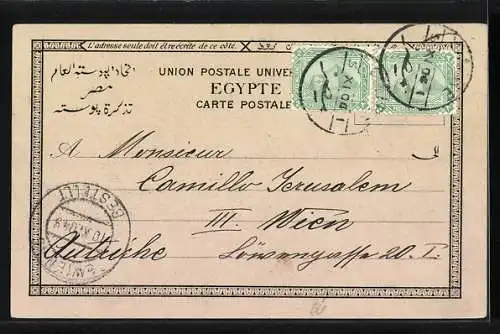 L'adresse seule doit être écrite de ce côté.
اتحاد البوسته العام
مصر
تذكرة بوسته
UNION POSTALE UNIVER
EGYPTE
CARTE POSTALE
A Monsieur
Camillo Jerusalem
III. Wien
Autriche Löwengasse 20. I.
BESTELLT
WIEN